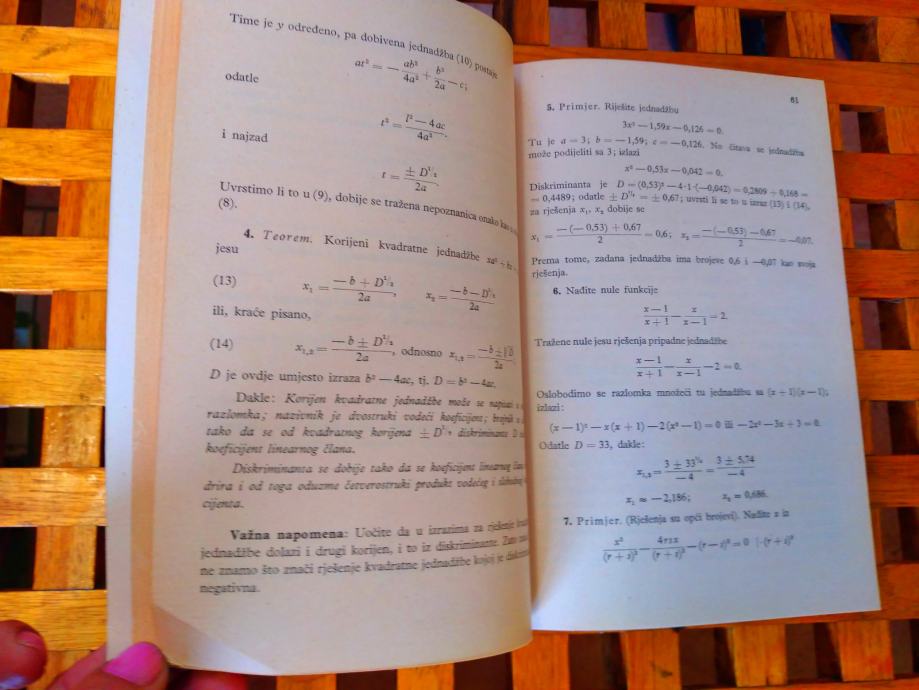 Time je y određeno, pa dobivena jednadžba (10) postaje
at² = − ab²/4a² + b²/2a − c;
odatle
t² = l² − 4ac/4a².
i najzad
t = ± D^1/2/2a.
Uvrstimo li to u (9), dobije se tražena nepoznanica onako kao
(8).
4. Teorem. Korijeni kvadratne jednadžbe xa² + bx
jesu
(13) x₁ = −b + D^1/2/2a, x₂ = −b − D^1/2/2a
ili, kraće pisano,
(14) x₁,₂ = −b ± D^1/2/2a, odnosno x₁,₂ = −b ± √D/2a.
D je ovdje umjesto izraza b² — 4ac, tj. D = b² — 4ac.
Dakle: Korijen kvadratne jednadžbe može se napisati
razlomka; nazivnik je dvostruki vodeći koeficijent; brojnik
tako da se od kvadratnog korijena ± D^1/2 diskriminante D
koeficijent linearnog člana.
Diskriminanta se dobije tako da se koeficijent linearnog
drira i od toga oduzme četverostruki produkt vodećeg i slobodnog
cijenta.
Važna napomena: Uočite da u izrazima za rješenje
jednadžbe dolazi i drugi korijen, i to iz diskriminante. Zato
ne znamo što znači rješenje kvadratne jednadžbe kojoj je
negativna.
61
5. Primjer. Riješite jednadžbu
3x² — 1,59x — 0,126 = 0.
Tu je a = 3; b = —1,59; c = —0,126. No čitava se jednadžba
može podijeliti sa 3; izlazi
x² — 0,53x — 0,042 = 0.
Diskriminanta je D = (0,53)² — 4·1·(—0,042) = 0,2809 + 0,168 =
= 0,4489; odatle ± D^1/2 = ± 0,67; uvrsti li se to u izraz (13) i (14),
za rješenja x₁, x₂ dobije se
x₁ = —(— 0,53) + 0,67/2 = 0,6; x₂ = —(—0,53) —0,67/2 = —0,07.
Prema tome, zadana jednadžba ima brojeve 0,6 i —0,07 kao svoja
rješenja.
6. Nađite nule funkcije
x — 1/x + 1 — x/x — 1 = 2.
Tražene nule jesu rješenja pripadne jednadžbe
x — 1/x + 1 — x/x — 1 — 2 = 0.
Oslobodimo se razlomka množeći tu jednadžbu sa (x + 1)(x — 1);
izlazi:
(x — 1)² — x (x + 1) — 2 (x² — 1) = 0 ili —2x² — 3x + 3 = 0.
Odatle D = 33, dakle:
x₁,₂ = 3 ± 33^1/2/—4 = 3 ± 5,74/—4
x₁ ≈ —2,186; x₂ = 0,686.
7. Primjer. (Rješenja su opći brojevi). Nađite x iz
x²/(r + s)² — 4rsx/(r + s)² — (r — s)² = 0 | · (r + s)²